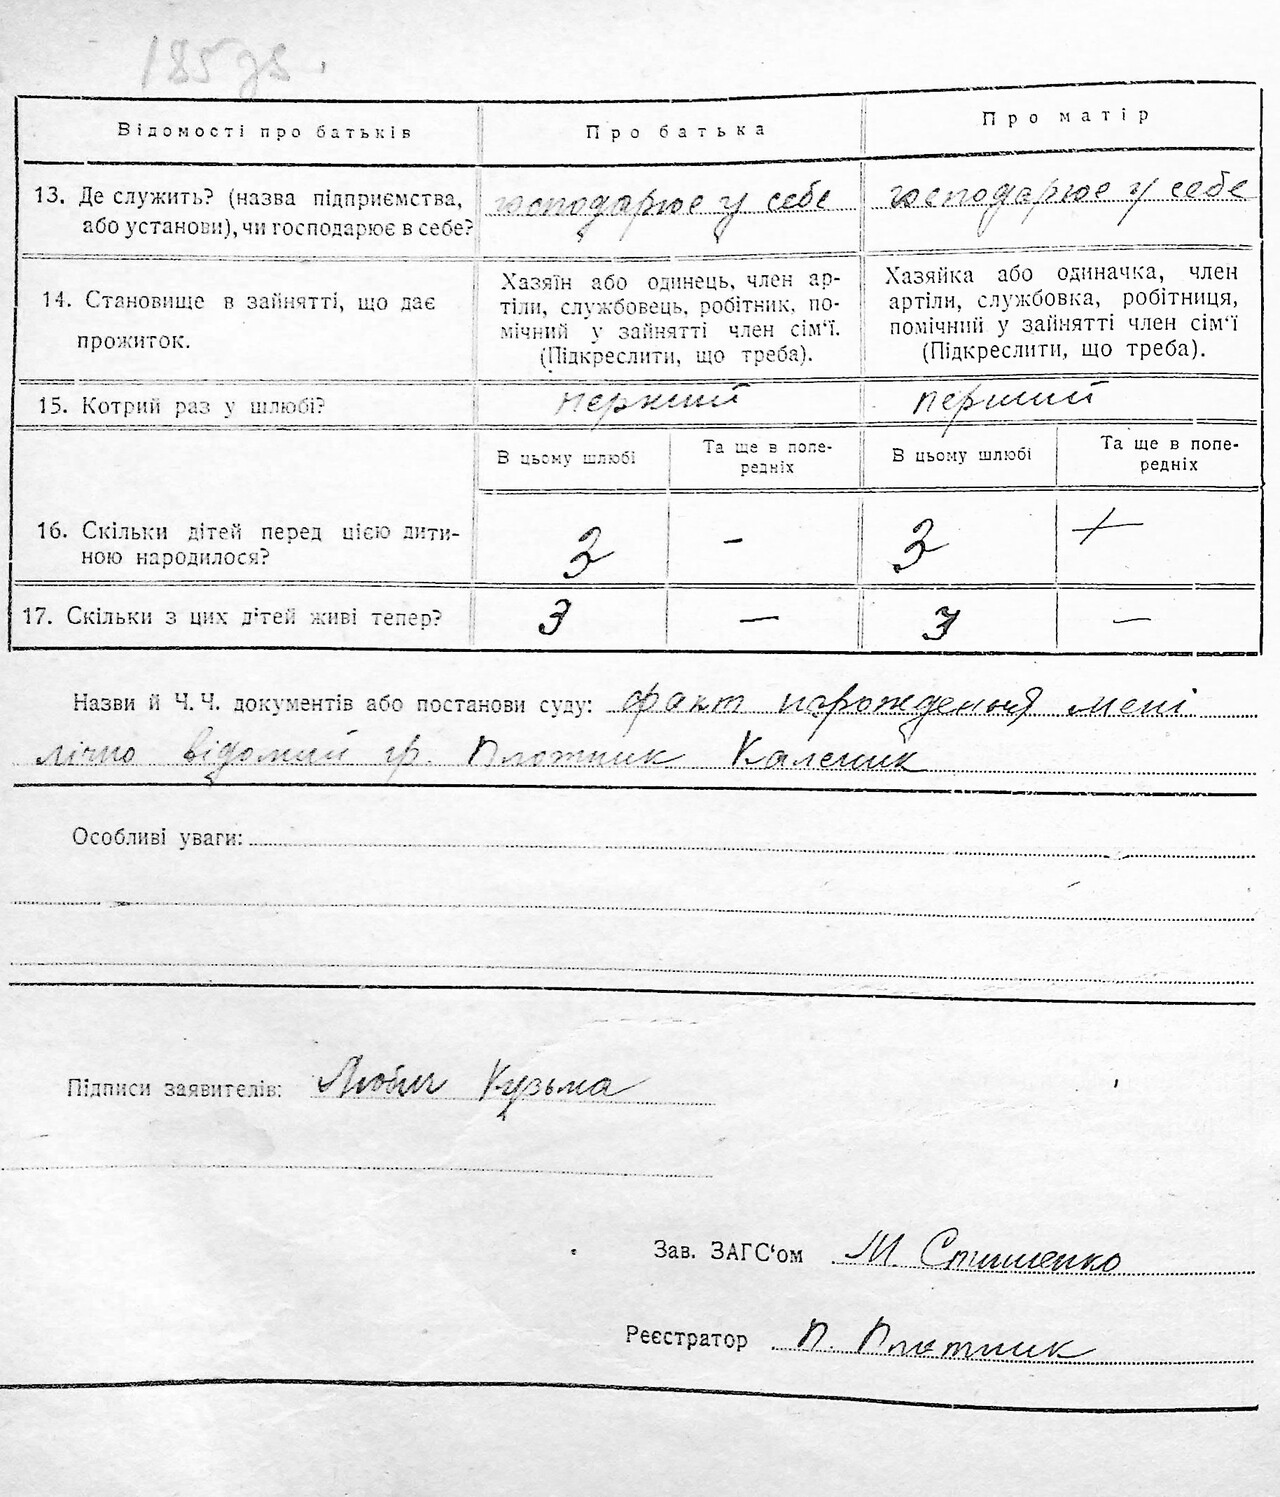 185 дв.
Відомості про батьків
Про батька
Про матір
13. Де служить? (назва підприємства,
або установи), чи господарює в себе?
господарює у себе
господарює у себе
14. Становище в зайнятті, що дає
прожиток.
Хазяїн або одинець, член ар-
тіли, службовець, робітник, по-
мічний у зайнятті член сім'ї.
(Підкреслити, що треба).
Хазяйка або одиначка, член
артіли, службовка, робітниця,
помічний у зайнятті член сім'ї
(Підкреслити, що треба).
15. Котрий раз у шлюбі?
перший
перший
В цьому шлюбі
Та ще в попе-
редніх
В цьому шлюбі
Та ще в попе-
редніх
16. Скільки дітей перед цією дити-
ною народилося?
3 - 3
17. Скільки з цих дітей живі тепер?
3 — 3 —
Назви й Ч. Ч. документів або постанови суду: факт нарождення мені
лічно відомий гр. Плотник Каленик
Особливі уваги:
Підписи заявителів: Кузьма
Зав. ЗАГС'ом М.
Реєстратор П. Плотник